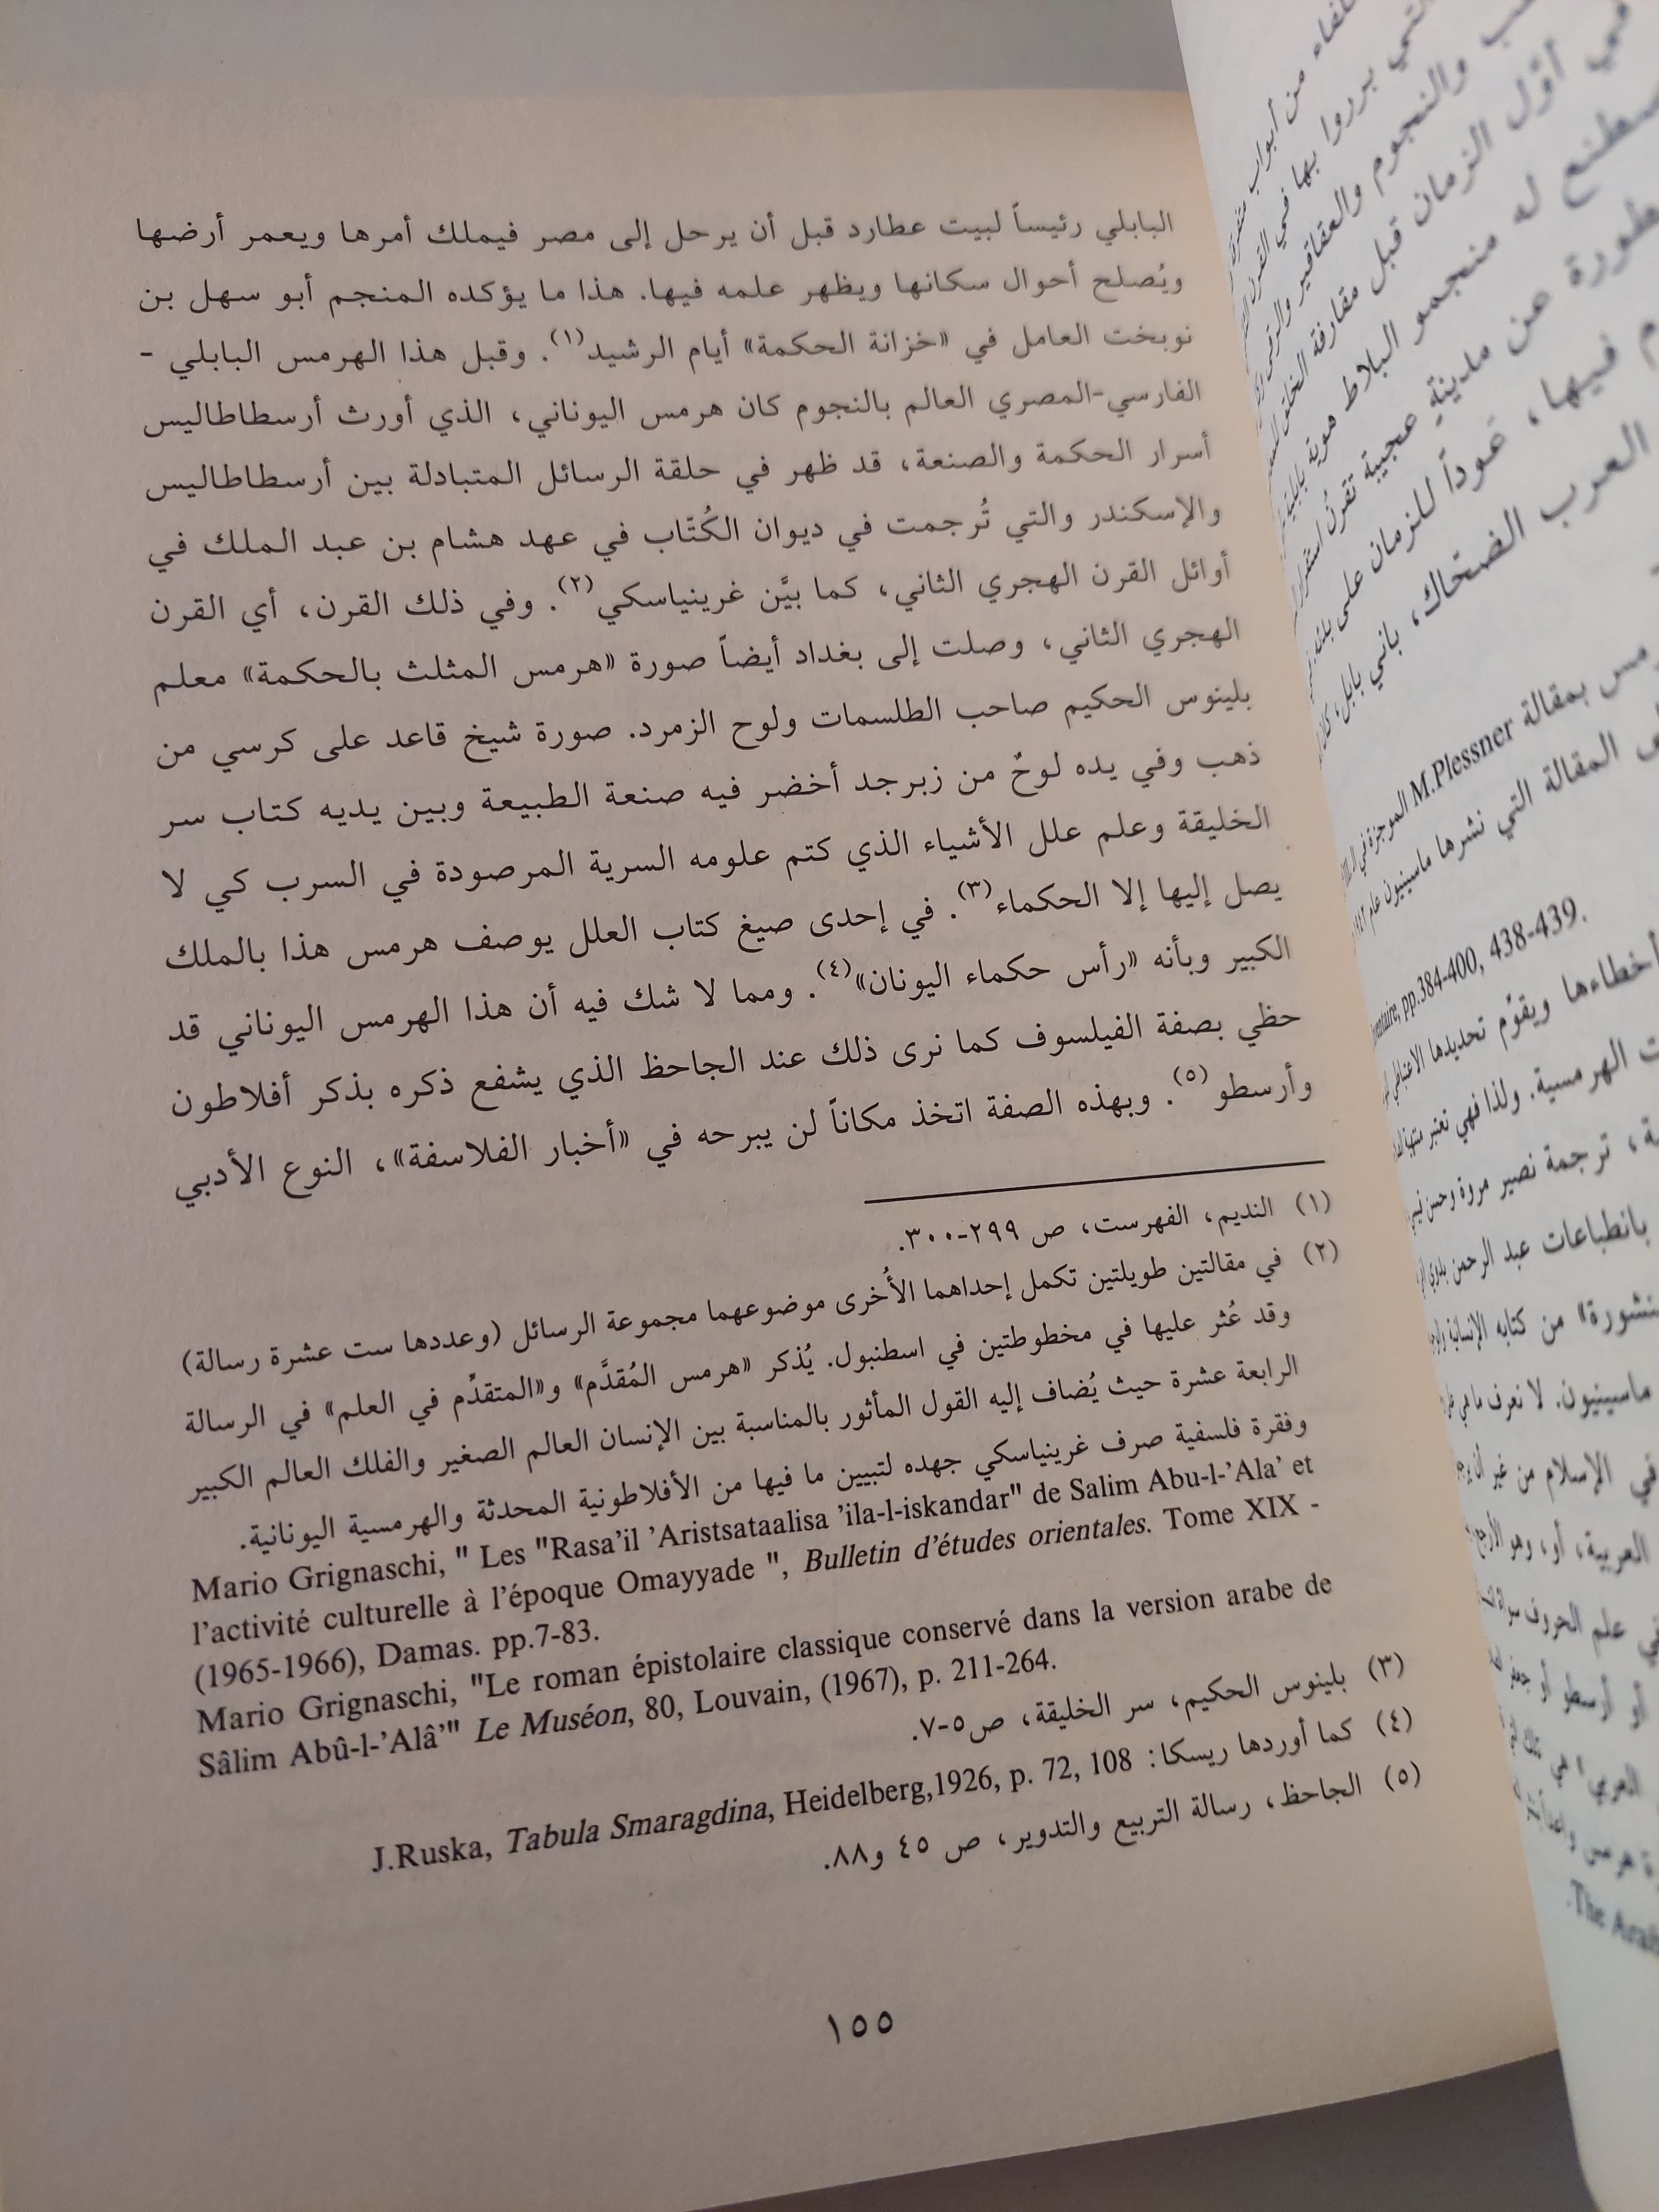 البابلي رئيساً لبيت عطارد قبل أن يرحل إلى مصر فيملك أمرها ويعمر أرضها
ويُصلح أحوال سكانها ويظهر علمه فيها. هذا ما يؤكده المنجم أبو سهل بن
نوبخت العامل في «خزانة الحكمة» أيام الرشيد(١). وقبل هذا الهرمس البابلي -
الفارسي-المصري العالم بالنجوم كان هرمس اليوناني، الذي أورث أرسطاطاليس
أسرار الحكمة والصنعة، قد ظهر في حلقة الرسائل المتبادلة بين أرسطاطاليس
والإسكندر والتي تُرجمت في ديوان الكُتّاب في عهد هشام بن عبد الملك في
أوائل القرن الهجري الثاني، كما بيَّن غرينياسكي(٢). وفي ذلك القرن، أي القرن
الهجري الثاني، وصلت إلى بغداد أيضاً صورة «هرمس المثلث بالحكمة» معلم
بلينوس الحكيم صاحب الطلسمات ولوح الزمرد. صورة شيخ قاعد على كرسي من
ذهب وفي يده لوحٌ من زبرجد أخضر فيه صنعة الطبيعة وبين يديه كتاب سر
الخليقة وعلم علل الأشياء الذي كتم علومه السرية المرصودة في السرب كي لا
يصل إليها إلا الحكماء(٣). في إحدى صيغ كتاب العلل يوصف هرمس هذا بالملك
الكبير وبأنه «رأس حكماء اليونان»(٤). ومما لا شك فيه أن هذا الهرمس اليوناني قد
حظي بصفة الفيلسوف كما نرى ذلك عند الجاحظ الذي يشفع ذكره بذكر أفلاطون
وأرسطو(٥). وبهذه الصفة اتخذ مكاناً لن يبرحه في «أخبار الفلاسفة»، النوع الأدبي
(١) النديم، الفهرست، ص ٢٩٩-٣٠٠.
(٢) في مقالتين طويلتين تكمل إحداهما الأُخرى موضوعهما مجموعة الرسائل (وعددها ست عشرة رسالة)
وقد عُثر عليها في مخطوطتين في اسطنبول. يُذكر «هرمس المُقدَّم» و«المتقدِّم في العلم» في الرسالة
الرابعة عشرة حيث يُضاف إليه القول المأثور بالمناسبة بين الإنسان العالم الصغير والفلك العالم الكبير
وفقرة فلسفية صرف غرينياسكي جهده لتبيين ما فيها من الأفلاطونية المحدثة والهرمسية اليونانية.
Mario Grignaschi, " Les "Rasa'il 'Aristsataalisa 'ila-l-iskandar" de Salim Abu-l-'Ala' et
l'activité culturelle à l'époque Omayyade ", Bulletin d'études orientales. Tome XIX -
(1965-1966), Damas. pp.7-83.
Mario Grignaschi, "Le roman épistolaire classique conservé dans la version arabe de
Sâlim Abû-l-'Alâ'" Le Muséon, 80, Louvain, (1967), p. 211-264.
(٣) بلينوس الحكيم، سر الخليقة، ص٥-٧.
(٤) كما أوردها ريسكا: J.Ruska, Tabula Smaragdina, Heidelberg,1926, p. 72, 108
(٥) الجاحظ، رسالة التربيع والتدوير، ص ٤٥ و٨٨.
١٥٥
من أبواب
التي برروا بها في القرن
والنجوم والعقاقير والرقى
في أوّل الزمان قبل مقارفة الخلق
له منجمو البلاط
عن مدينة عجيبة تقرن
فيها، عوداً للزمان على
العرب الضحّاك، باني بابل،
بمقالة M.Plessner الموجزة في
المقالة التي نشرها ماسينيون عام
pp.384-400, 438-439.
أخطاءها ويقوّم تحديدها
الهرمسية. ولذا فهي تعتبر
ترجمة نصير مروة وحسن
بانطباعات عبد الرحمن بدوي
من كتابه الإنسانية
ماسينيون. لا نعرف ما هي
في الإسلام من غير أن
العربية، أو، وهو الأرجح
في علم الحروف
أو أرسطو أو
The Arab